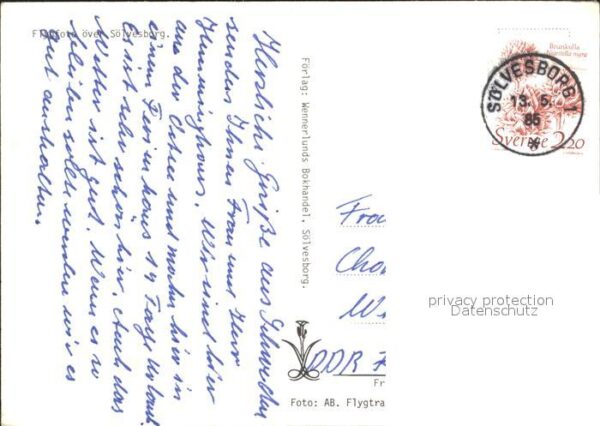 Flygfoto över Sölvesborg.
Herzliche Grüße aus Schweden
senden Ihnen Frau und Herr
Wir sind hier
an der Ostsee und machen hier in
einem Ferienhaus 14 Tage Urlaub.
Es ist sehr schön hier. Auch das
Wetter ist gut. Wenn es so
bleiben sollte werden wir es
gut aushalten.
Förlag: Wennerlunds Bokhandel, Sölvesborg.
Brunkulla
Nigritella nigra
SÖLVESBORG 1
13. 5.
85
Sverige 2.20
Fra
DDR
Fr
Foto: AB. Flygtra
privacy protection
Datenschutz